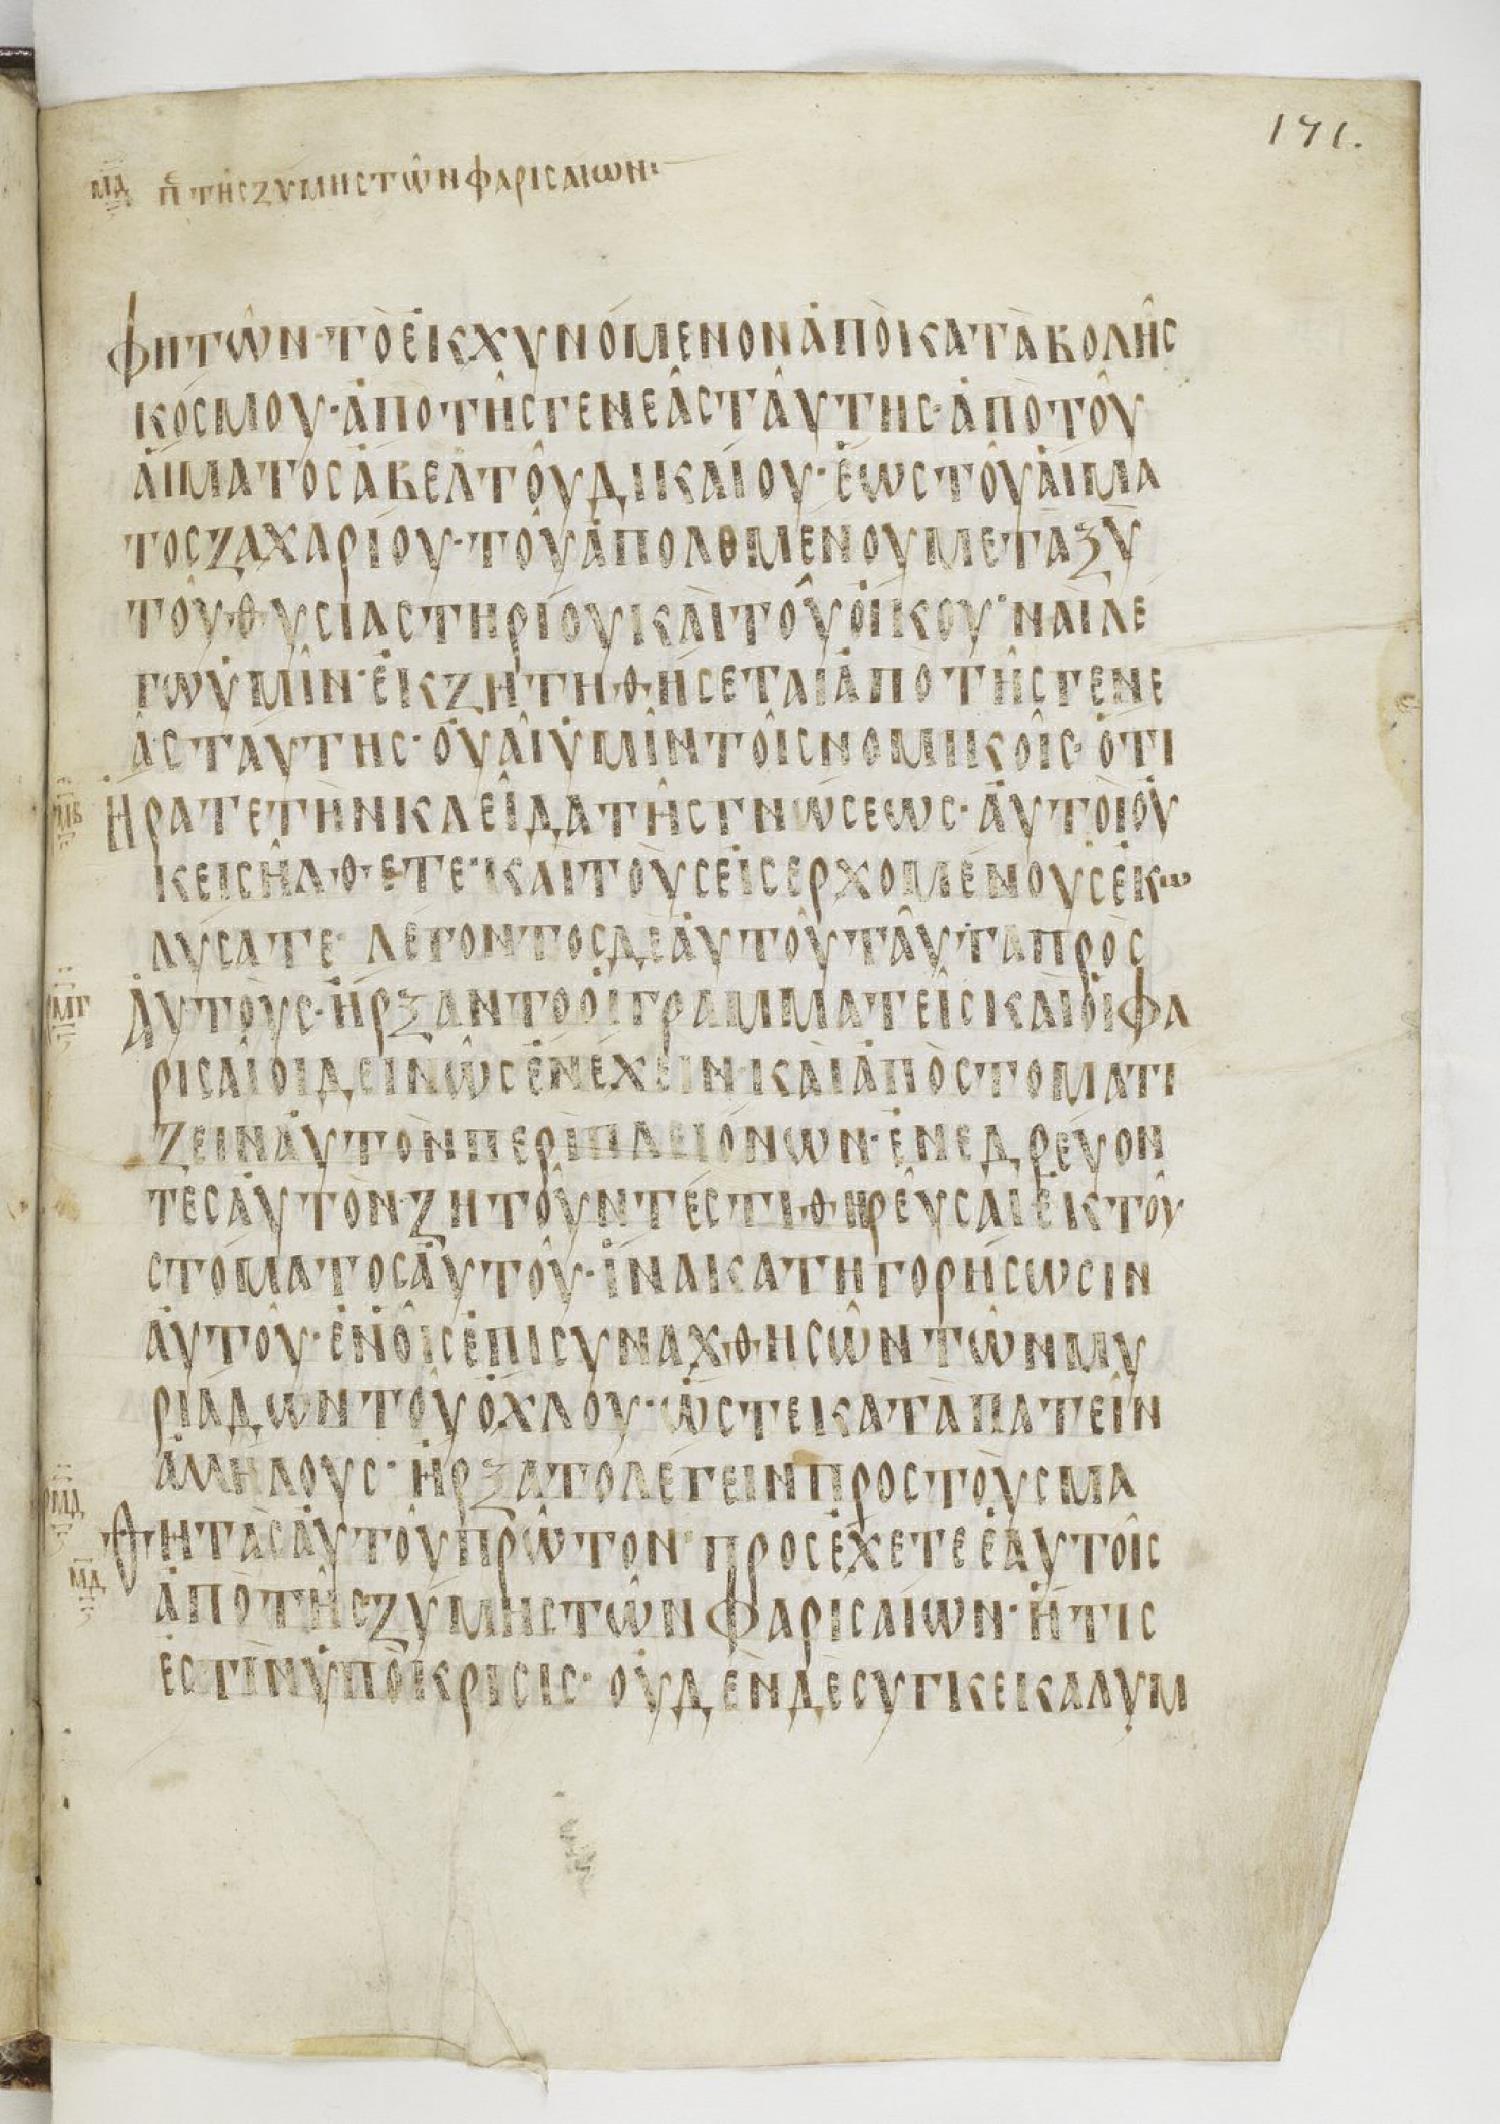 171.
ΜΔ Π̅ ΤΗΣ ΖΥΜΗΣ ΤΩΝ ΦΑΡΙΣΑΙΩΝ·
ΦΗΤΩΝ· ΤΟ ΕΚΧΥΝΟΜΕΝΟΝ ΑΠΟ ΚΑΤΑΒΟΛΗΣ
ΚΟΣΜΟΥ· ΑΠΟ ΤΗΣ ΓΕΝΕΑΣ ΤΑΥΤΗΣ· ΑΠΟ ΤΟΥ
ΑΙΜΑΤΟΣ ΑΒΕΛ ΤΟΥ ΔΙΚΑΙΟΥ· ΕΩΣ ΤΟΥ ΑΙΜΑ
ΤΟΣ ΖΑΧΑΡΙΟΥ· ΤΟΥ ΑΠΟΛΟΜΕΝΟΥ ΜΕΤΑΞΥ
ΤΟΥ ΘΥΣΙΑΣΤΗΡΙΟΥ ΚΑΙ ΤΟΥ ΟΙΚΟΥ· ΝΑΙ ΛΕ
ΓΩ ΥΜΙΝ· ΕΚΖΗΤΗΘΗΣΕΤΑΙ ΑΠΟ ΤΗΣ ΓΕΝΕ
ΑΣ ΤΑΥΤΗΣ· ΟΥΑΙ ΥΜΙΝ ΤΟΙΣ ΝΟΜΙΚΟΙΣ· ΟΤΙ
ΜΒ ΗΡΑΤΕ ΤΗΝ ΚΛΕΙΔΑ ΤΗΣ ΓΝΩΣΕΩΣ· ΑΥΤΟΙ ΟΥ
Κ ΕΙΣΗΛΘΕΤΕ· ΚΑΙ ΤΟΥΣ ΕΙΣΕΡΧΟΜΕΝΟΥΣ ΕΚω
ΛΥΣΑΤΕ· ΛΕΓΟΝΤΟΣ ΔΕ ΑΥΤΟΥ ΤΑΥΤΑ ΠΡΟΣ
ΜΓ ΑΥΤΟΥΣ· ΗΡΞΑΝΤΟ ΟΙ ΓΡΑΜΜΑΤΕΙΣ ΚΑΙ ΟΙ ΦΑ
ΡΙΣΑΙΟΙ ΔΕΙΝΩΣ ΕΝΕΧΕΙΝ· ΚΑΙ ΑΠΟΣΤΟΜΑΤΙ
ΖΕΙΝ ΑΥΤΟΝ ΠΕΡΙ ΠΛΕΙΟΝΩΝ· ΕΝΕΔΡΕΥΟΝ
ΤΕΣ ΑΥΤΟΝ· ΖΗΤΟΥΝΤΕΣ ΤΙ ΘΗΡΕΥΣΑΙ ΕΚ ΤΟΥ
ΣΤΟΜΑΤΟΣ ΑΥΤΟΥ· ΙΝΑ ΚΑΤΗΓΟΡΗΣΩΣΙΝ
ΑΥΤΟΥ· ΕΝ ΟΙΣ ΕΠΙΣΥΝΑΧΘΗΣΩΝ ΤΩΝ ΜΥ
ΡΙΑΔΩΝ ΤΟΥ ΟΧΛΟΥ· ΩΣΤΕ ΚΑΤΑΠΑΤΕΙΝ
ΑΛΛΗΛΟΥΣ· ΗΡΞΑΤΟ ΛΕΓΕΙΝ ΠΡΟΣ ΤΟΥΣ ΜΑ
ΜΔ ΘΗΤΑΣ ΑΥΤΟΥ ΠΡΩΤΟΝ· ΠΡΟΣΕΧΕΤΕ ΕΑΥΤΟΙΣ
ΜΔ ΑΠΟ ΤΗΣ ΖΥΜΗΣ ΤΩΝ ΦΑΡΙΣΑΙΩΝ· ΗΤΙΣ
ΕΣΤΙΝ ΥΠΟΚΡΙΣΙΣ· ΟΥΔΕΝ ΔΕ ΣΥΓΚΕΚΑΛΥΜ